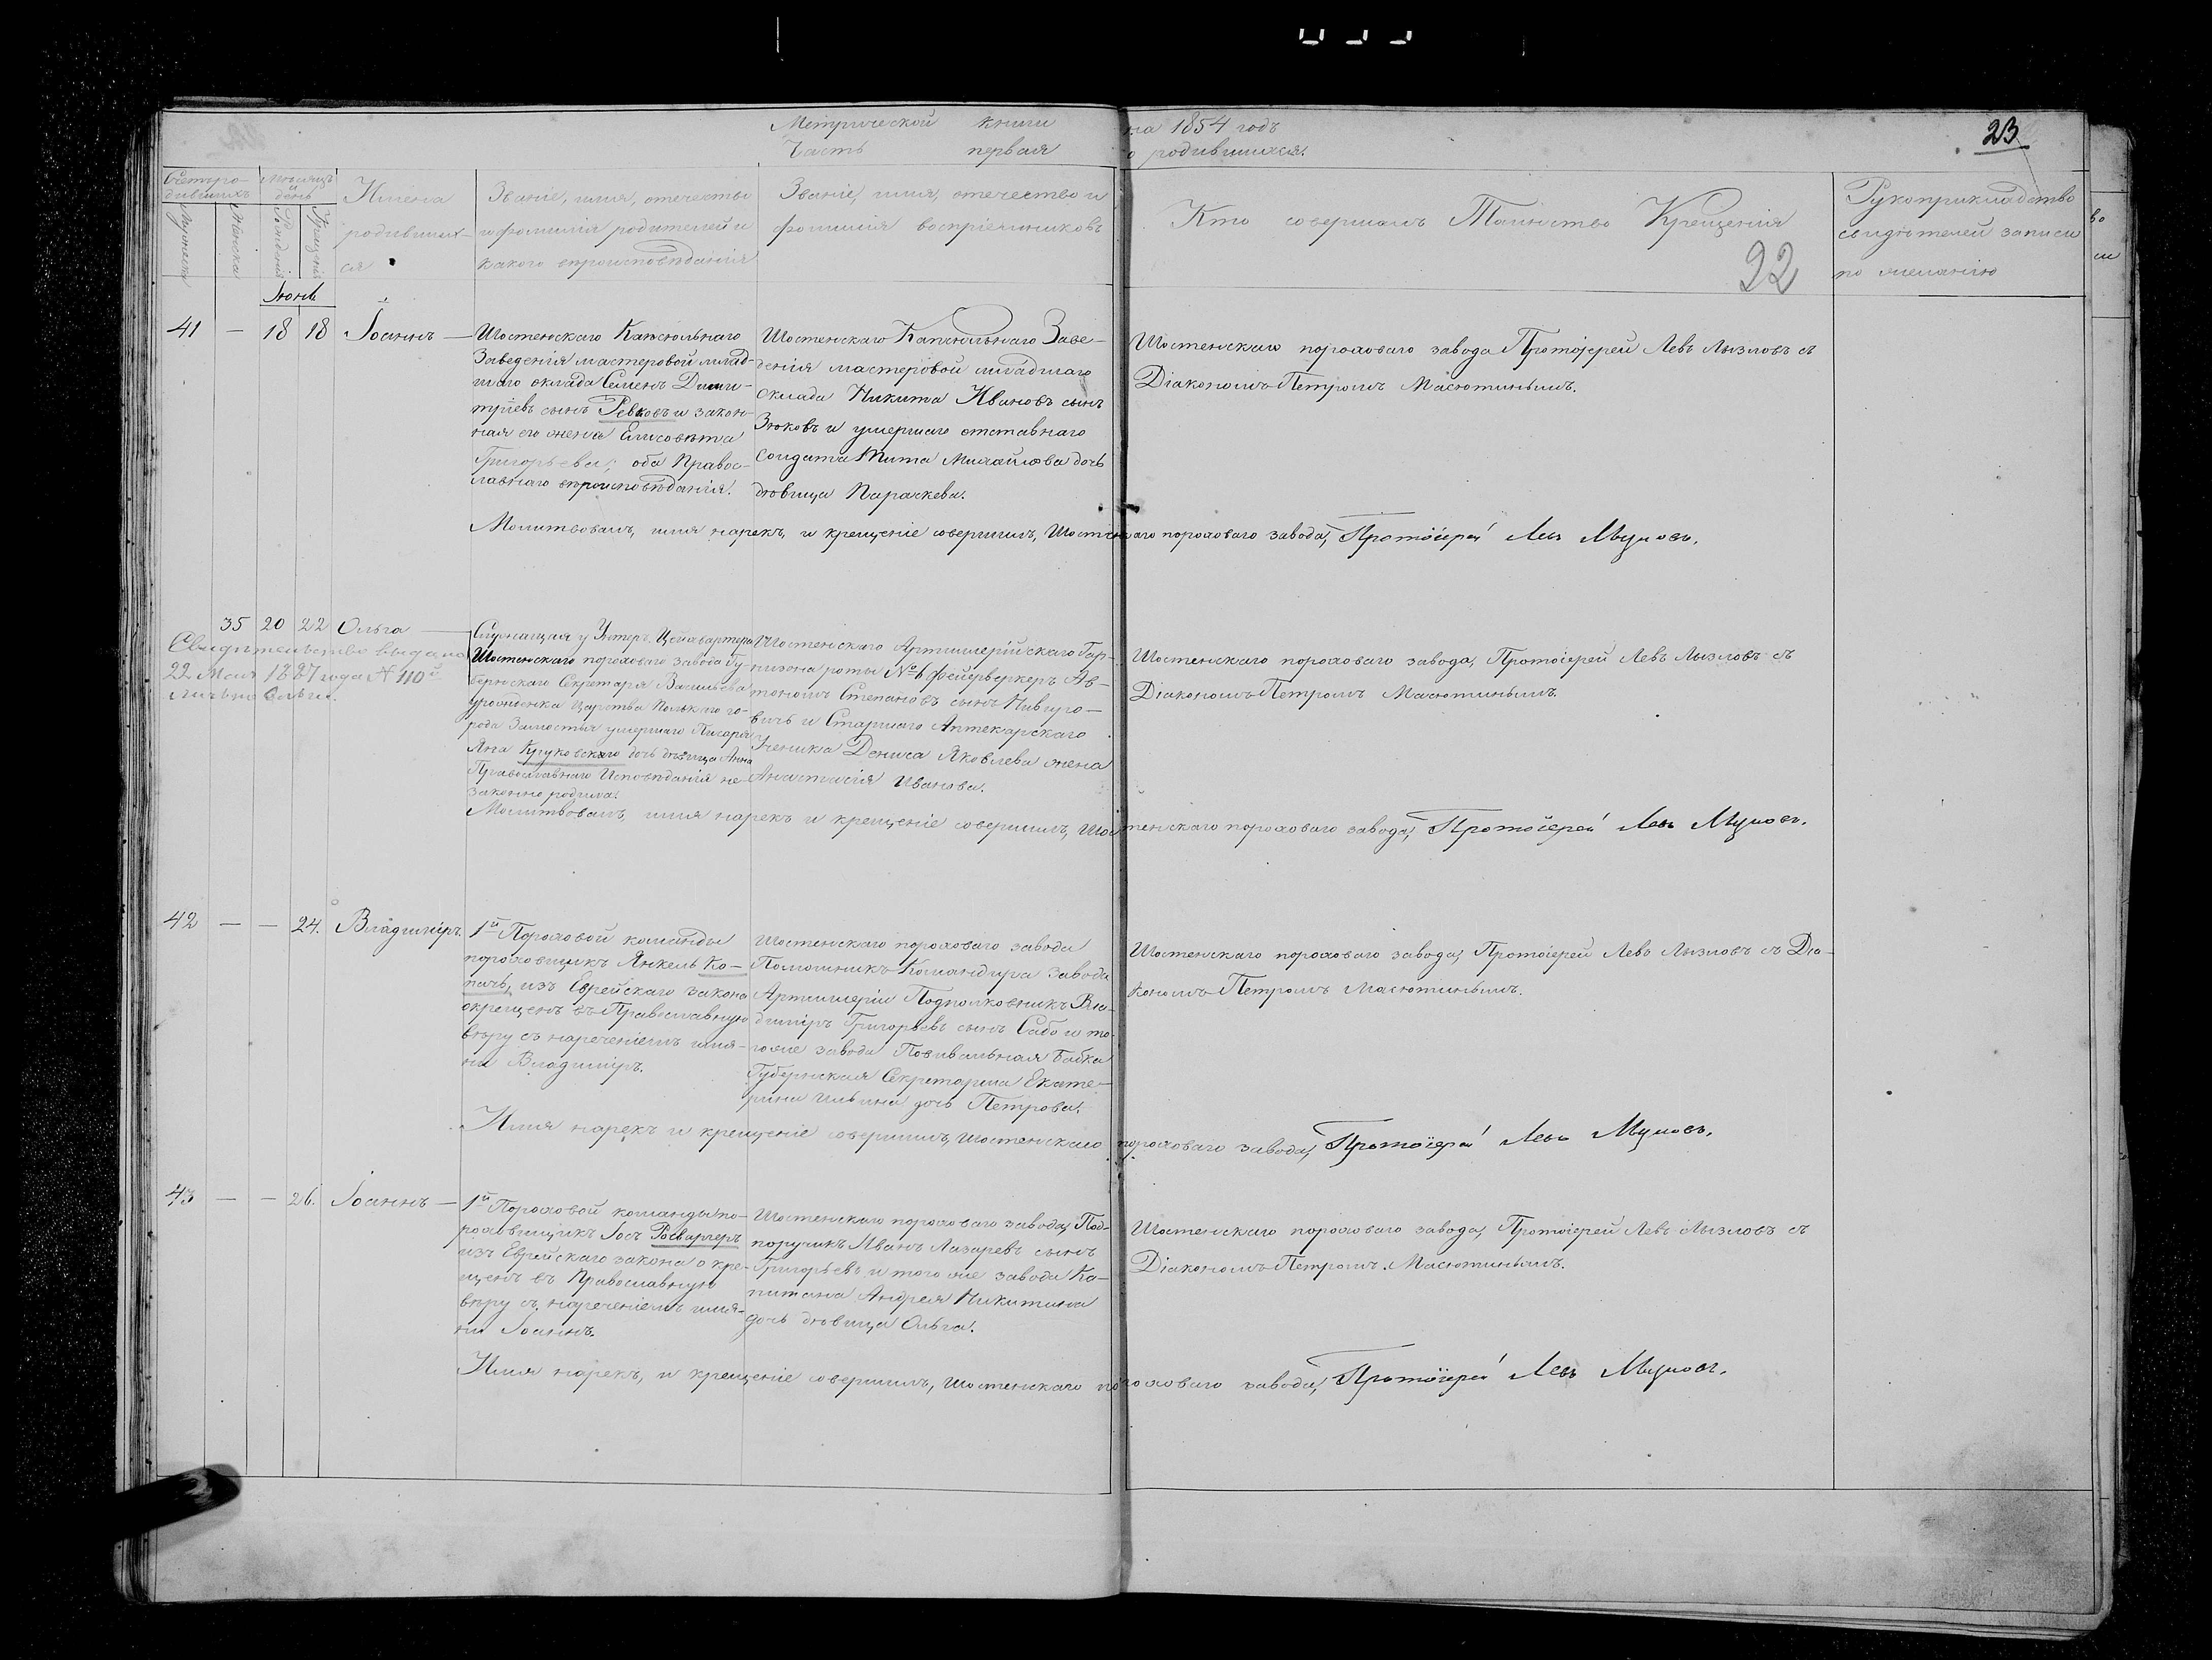 Метрической книги на 1854 годъ
Часть первая о родившихся.
23
Счетъ ро-
дившихъ
Мужеска
Женска
Месяцъ
и
день
Рожденія
Крещенія
Имена
родивших-
ся
Званіе, имя, отечество
и фамилія родителей и
какого вѣроисповѣданія
Званіе, имя, отечество и
фамилія воспріемниковъ
Кто совершалъ Таинство Крещенія
22
Рукоприкладство
свидѣтелей записи
по желанію
Іюнь
41 — 18 18 Іоаннъ —
Шостенскаго Капсюльнаго
Заведенія мастеровой млад-
шаго оклада Семенъ Дими-
тріевъ сынъ Ревковъ и закон-
ная его жена Елисовѣта
Григорьева; оба Правос-
лавнаго вѣроисповѣданія.
Шостенскаго Капсюльнаго Заве-
денія мастеровой младшаго
оклада Никита Ивановъ сынъ
Зюковъ и умершаго отставнаго
солдата Тита Михайлова дочь
дѣвица Параскева.
Шостенскаго пороховаго завода Протоіерей Левъ Лызловъ съ
Діакономъ Петромъ Масютинымъ.
Молитвовалъ, имя нарекъ, и крещеніе совершилъ, Шостенскаго пороховаго завода, Протоіерей Левъ Лызловъ.
35 20 22 Ольга —
Свидѣтельство выдано
22 Мая 1887 года № 110
лично Ольги.
Служащая у Унтеръ Цейхвартера
Шостенскаго пороховаго завода Гу-
бернскаго Секретаря Васильева
уроженка Царства Польскаго го-
рода Замостья умершаго Писаря
Яна Круковскаго дочь дѣвица Анна
Православнаго Исповѣданія не-
законно родила.
Шостенскаго Артиллерійскаго Гар-
низона роты № 6 фейерверкеръ Ав-
тономъ Степановъ сынъ
и Старшаго Аптекарскаго
Ученика Дениса Яковлева жена
Анастасія Иванова.
Шостенскаго пороховаго завода, Протоіерей Левъ Лызловъ съ
Діакономъ Петромъ Масютинымъ.
Молитвовалъ, имя нарекъ и крещеніе совершилъ, Шостенскаго пороховаго завода, Протоіерей Левъ Лызловъ.
42 — — 24. Владиміръ.
1й Пороховой команды
пороховщикъ Янкель Ко-
пачь, изъ Еврейскаго закона
окрещенъ въ Православную
вѣру съ нареченіемъ имя-
ни Владиміръ.
Шостенскаго пороховаго завода
Помошникъ Командира завода
Артиллеріи Подполковникъ Вла-
диміръ Григорьевъ сынъ Сабо и то-
гоже завода Повивальная Бабка
Губернская Секретарша Екате-
рина Ильина дочь Петрова.
Шостенскаго пороховаго завода, Протоіерей Левъ Лызловъ съ Діа-
кономъ Петромъ Масютинымъ.
Имя нарекъ и крещеніе совершилъ, Шостенскаго пороховаго завода, Протоіерей Левъ Лызловъ.
43 — — 26. Іоаннъ —
1й Пороховой команды по-
роховщикъ Іосъ
изъ Еврейскаго закона окре-
щенъ въ Православную
вѣру съ нареченіемъ имя-
ни Іоаннъ.
Шостенскаго пороховаго завода, Под-
поручикъ Иванъ Лазаревъ сынъ
Григорьевъ и того же завода Ка-
питана Андрея Никитина
дочь дѣвица Ольга.
Шостенскаго пороховаго завода, Протоіерей Левъ Лызловъ съ
Діакономъ Петромъ Масютинымъ.
Имя нарекъ, и крещеніе совершилъ, Шостенскаго пороховаго завода, Протоіерей Левъ Лызловъ.